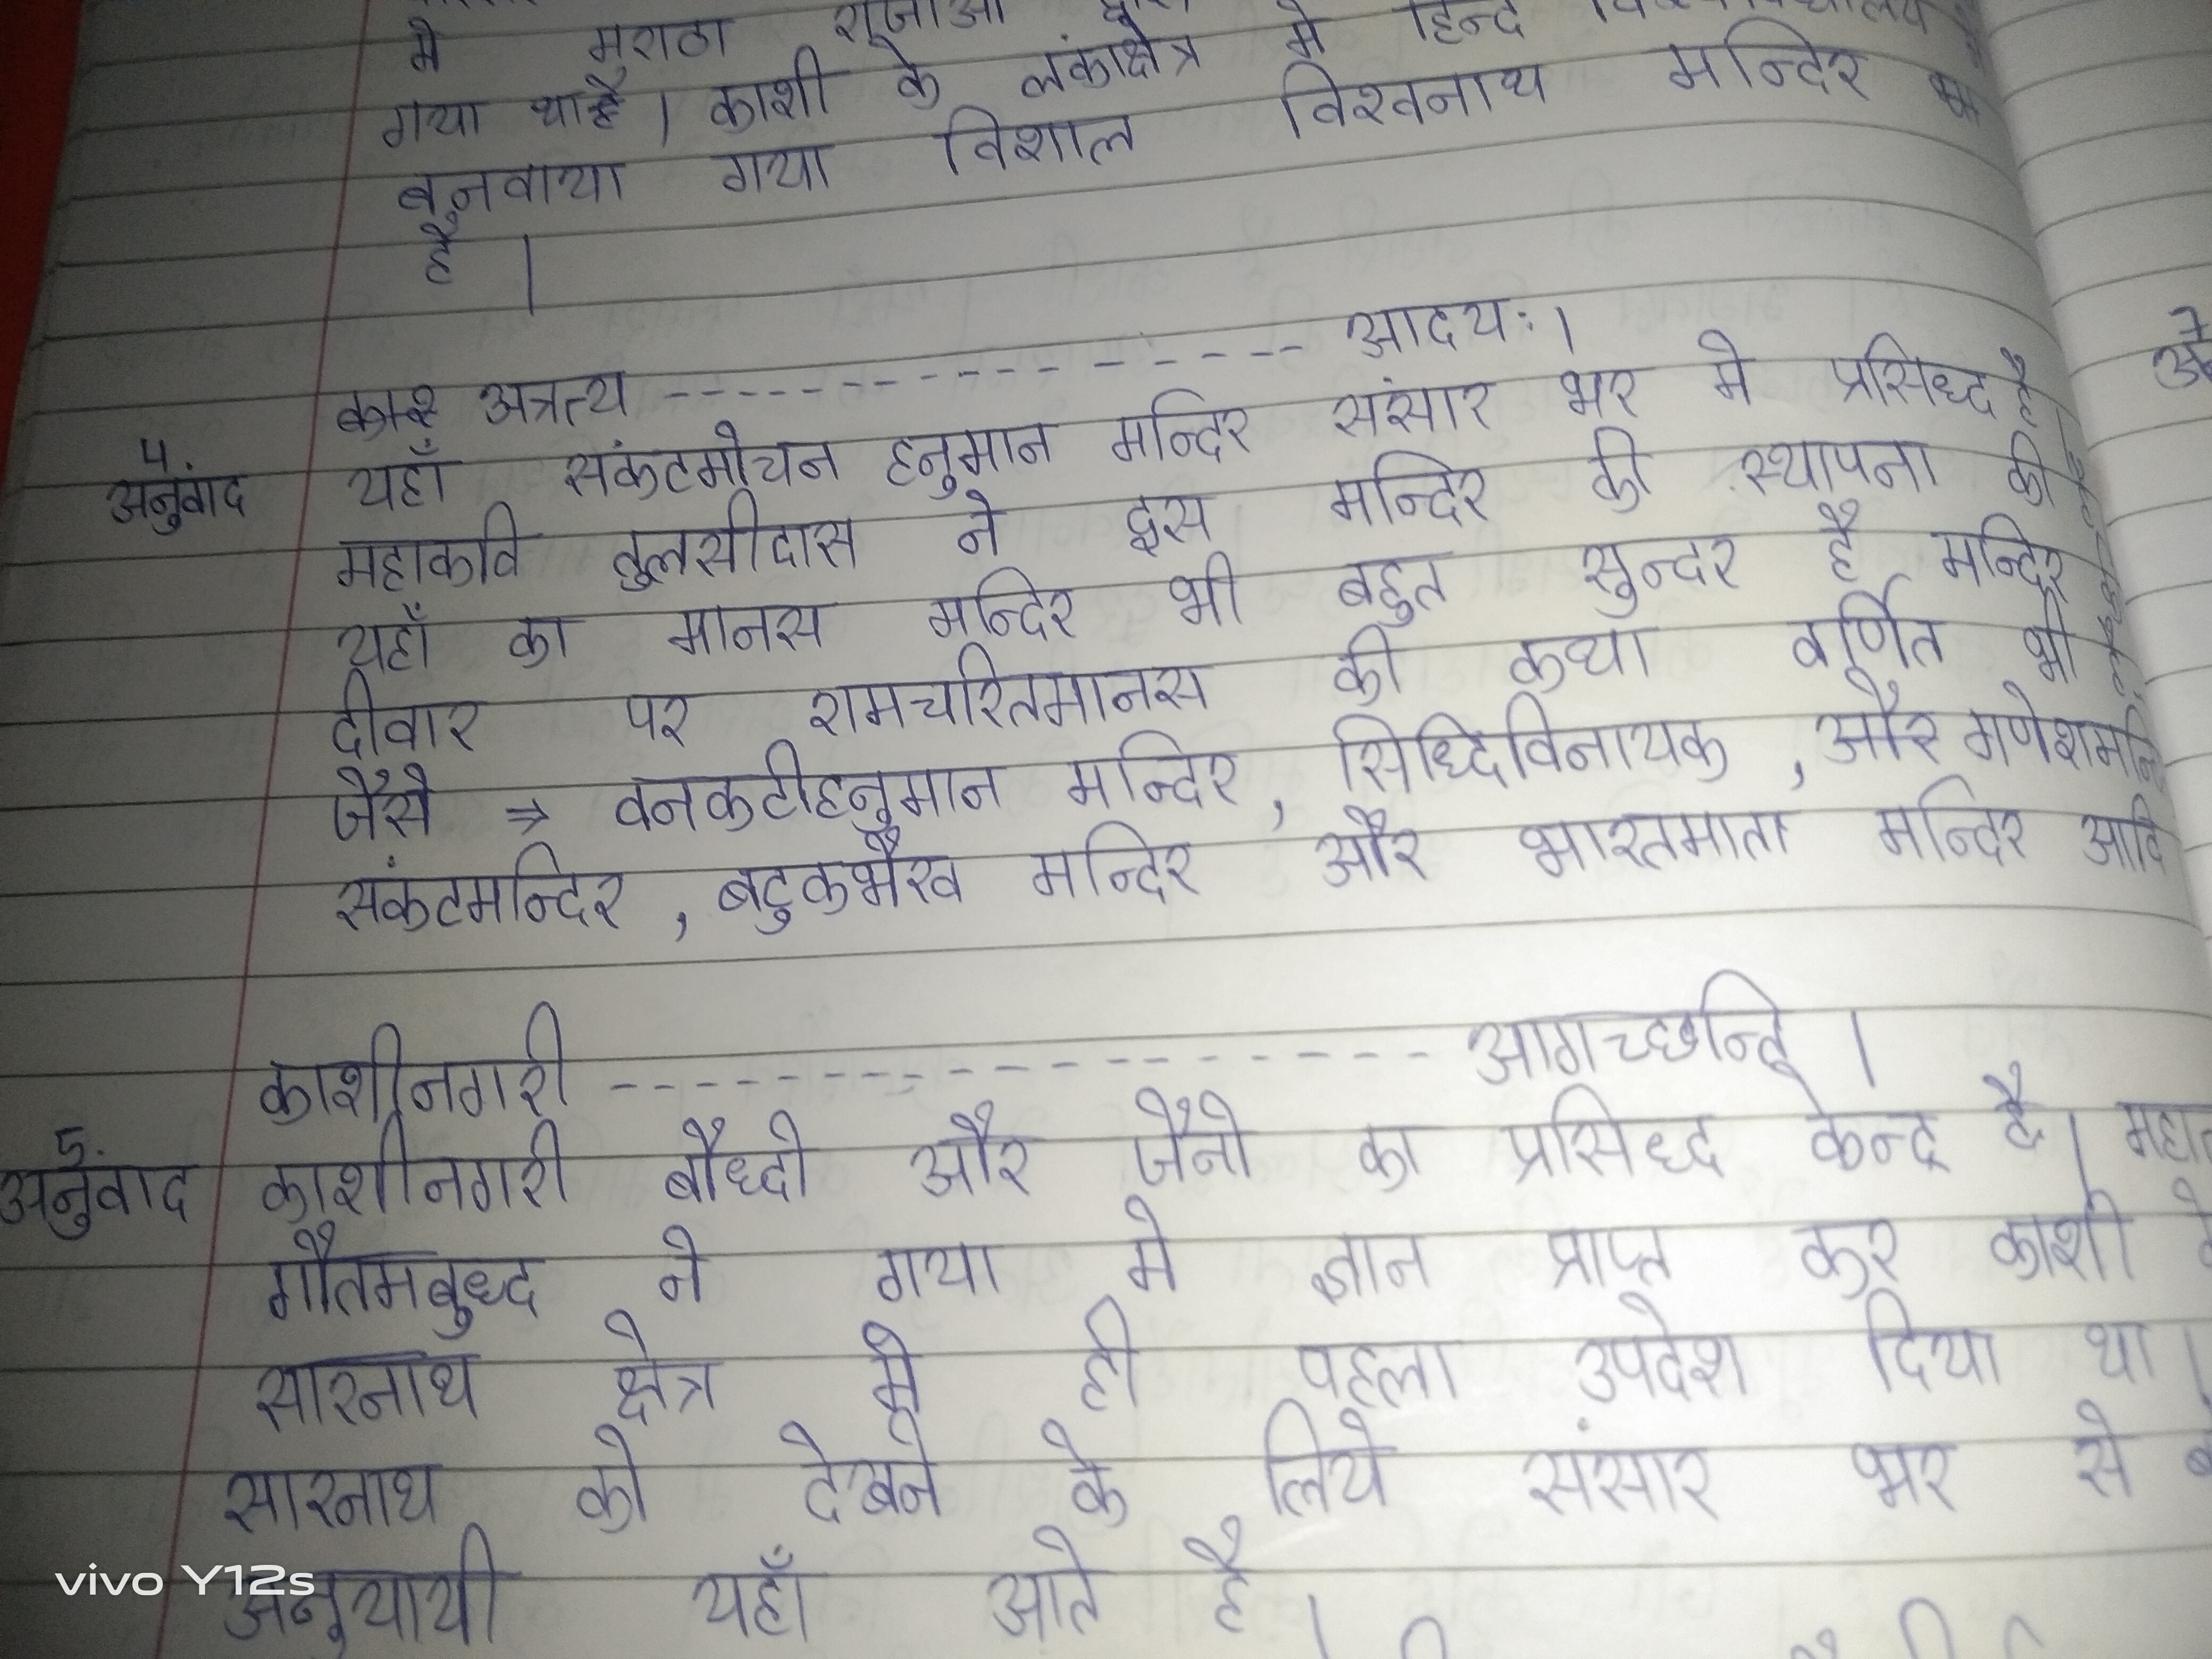 मे मराठा राजाओ
गया था है। काशी के लंकाक्षेत्र मे हिन्द
बनवाया गया विशाल विश्वनाथ मन्दिर
है।
अत्रत्य ------------------ आदयः।
4.
अनुवाद यहाँ संकंटमोचन हनुमान मन्दिर संसार भर मे प्रसिध्द है।
महाकवि तुलसीदास ने इस मन्दिर की स्थापना की
यहाँ का मानस मन्दिर भी बहुत सुन्दर है मन्दिर
दीवार पर रामचरितमानस की कथा वर्णित भी
जैसे ⇒ वनकटीहनुमान मन्दिर, सिध्दिविनायक, और गणेशमन्दि
संकंटमन्दिर, बटुकभैरव मन्दिर और भारतमाता मन्दिर आदि
काशीनगरी ------------------ आगच्छन्दि।
5.
अनुवाद काशीनगरी बौध्दो और जैनो का प्रसिध्द केन्द्र है।
गौतमबुध्द ने गया मे ज्ञान प्राप्त कर काशी
सारनाथ क्षेत्र मे ही पहला उपदेश दिया था।
सारनाथ को देखने के लिये संसार भर से
अनुयायी यहाँ आते है।
vivo Y12s